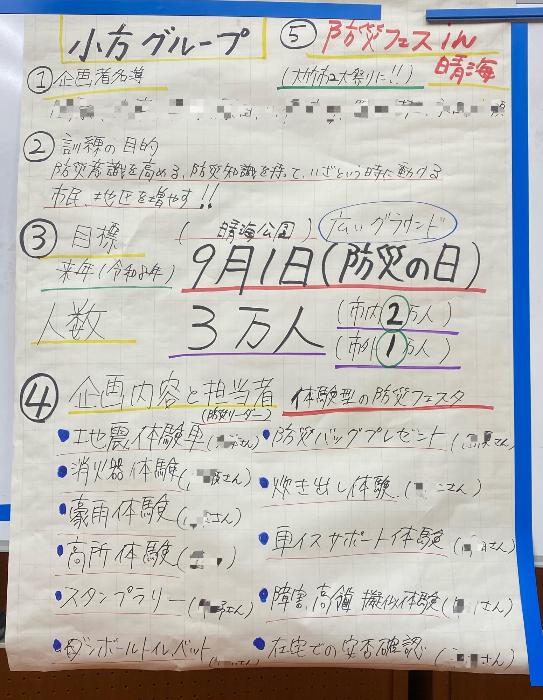 小方グループ
⑤ 防災フェスin
晴海
① 企画者名簿
(大竹市2大祭りに!!)
② 訓練の目的
防災意識を高める、防災知識を持って、いざという時に動ける
市民、地区を増やす!!
③ 目標
(晴海公園)
広いグラウンド
来年(令和8年)
9月1日(防災の日)
人数
3万人
(市内2万人)
(市外1万人)
④ 企画内容と担当者
(防災リーダー)
体験型の防災フェスタ
・地震体験車(さん)
・防災バッグプレゼント(さん)
・消火器体験(さん)
・炊き出し体験(さん)
・豪雨体験(さん)
・車イスサポート体験(さん)
・高所体験()
・スタンプラリー(さん)
・障害、高齢 擬似体験(さん)
・ダンボールトイレ、ベット
・在宅での安否確認(さん)